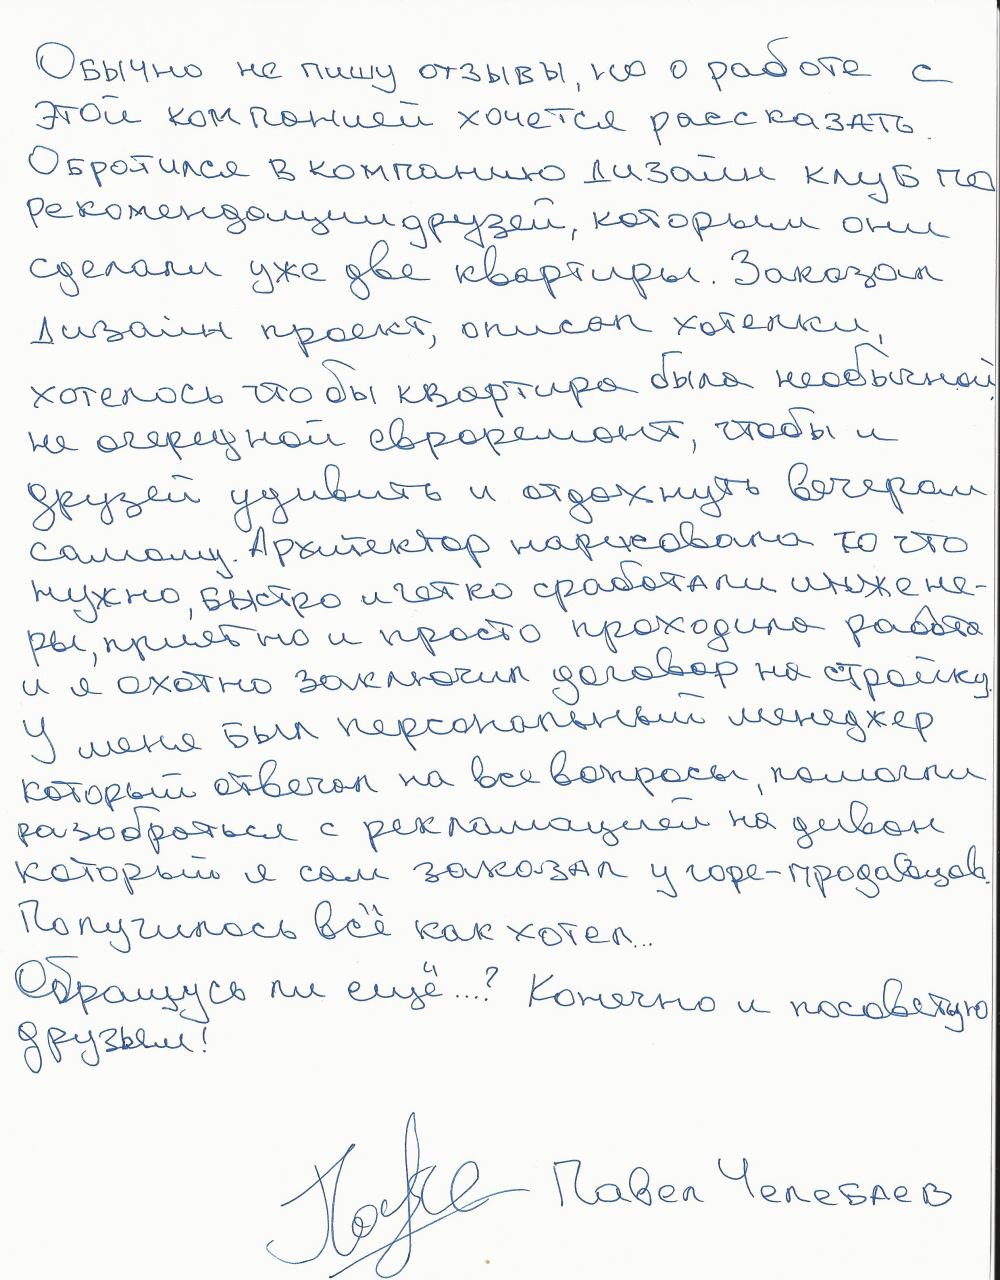 Обычно не пишу отзывы, но о работе с
этой компанией хочется рассказать.
Обратился в компанию Дизайн клуб по
рекомендации друзей, которым они
сделали уже две квартиры. Заказал
Дизайн проект, описал хотелки,
хотелось что бы квартира была необычной,
не очередной евроремонт, чтобы и
друзей удивить и отдохнуть вечерам
самому. Архитектор нарисовала то что
нужно, быстро и четко сработали инжене-
ры, приятно и просто проходила работа
и я охотно заключил договор на стройку.
У меня был персональный менеджер
который отвечал на все вопросы, помогли
разобраться с рекламацией на диван
который я сам заказал у горе-продавцов.
Получилось всё как хотел...
Обращусь ли ещё....? Конечно и посоветую
друзьям!
Павел Челебаев